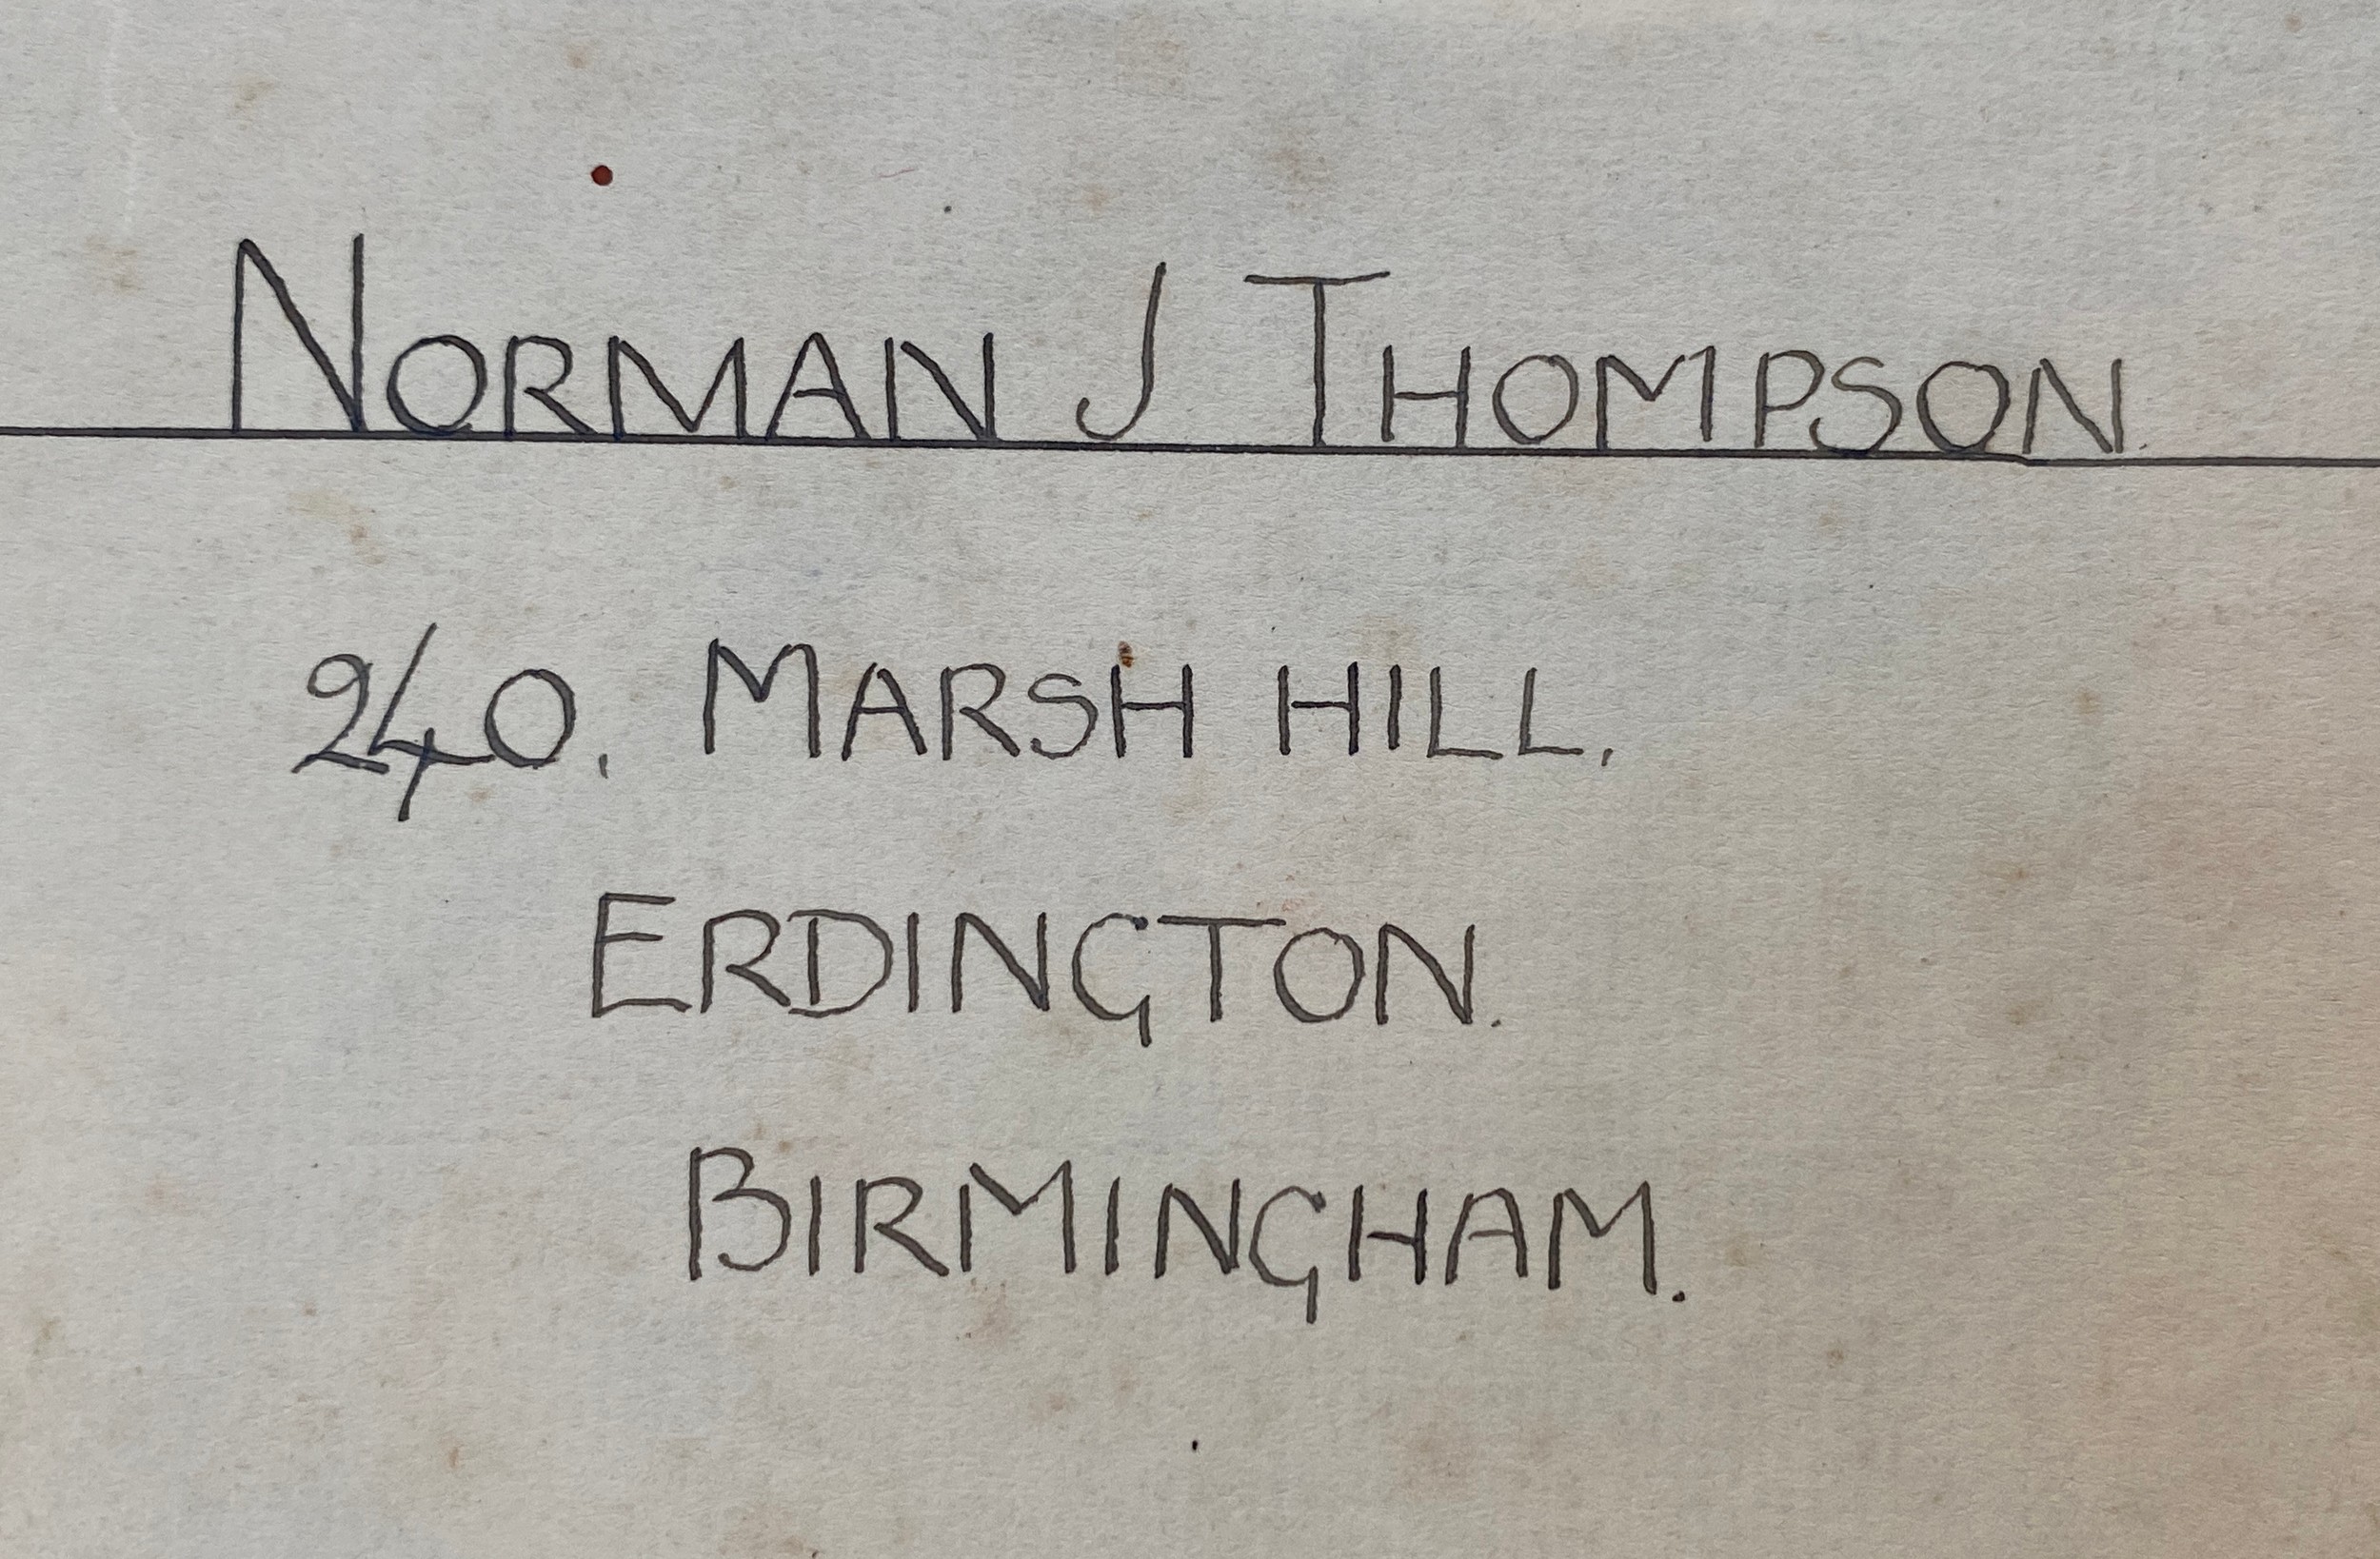 NORMAN J THOMPSON.
240. MARSH HILL.
ERDINGTON.
BIRMINGHAM.